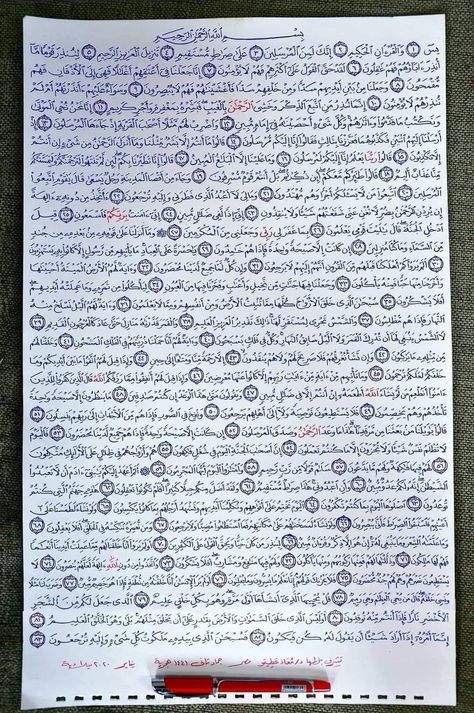 بِسْمِ اللَّهِ الرَّحْمَٰنِ الرَّحِيمِ
يس ١ والقرءان الحكيم ٢ إنك لمن المرسلين ٣ على صراط مستقيم ٤ تنزيل العزيز الرحيم ٥ لتنذر قوما ما
أنذر ءاباؤهم فهم غافلون ٦ لقد حق القول على أكثرهم فهم لا يؤمنون ٧ إنا جعلنا في أعناقهم أغلالا فهي إلى الأذقان فهم
مقمحون ٨ وجعلنا من بين أيديهم سدا ومن خلفهم سدا فأغشيناهم فهم لا يبصرون ٩ وسواء عليهم ءأنذرتهم أم لم
تنذرهم لا يؤمنون ١٠ إنما تنذر من اتبع الذكر وخشي الرحمن بالغيب فبشره بمغفرة وأجر كريم ١١ إنا نحن نحي الموتى
ونكتب ما قدموا وءاثارهم وكل شيء أحصيناه في إمام مبين ١٢ واضرب لهم مثلا أصحاب القرية إذ جاءها المرسلون ١٣ إذ
أرسلنا إليهم اثنين فكذبوهما فعززنا بثالث فقالوا إنا إليكم مرسلون ١٤ قالوا ما أنتم إلا بشر مثلنا وما أنزل الرحمن من شيء إن أنتم
إلا تكذبون ١٥ قالوا ربنا يعلم إنا إليكم لمرسلون ١٦ وما علينا إلا البلاغ المبين ١٧ قالوا إنا تطيرنا بكم لئن لم تنتهوا لنرجمنكم وليمسنكم
منا عذاب أليم ١٨ قالوا طائركم معكم أئن ذكرتم بل أنتم قوم مسرفون ١٩ وجاء من أقصا المدينة رجل يسعى قال يا قوم اتبعوا
المرسلين ٢٠ اتبعوا من لا يسألكم أجرا وهم مهتدون ٢١ وما لي لا أعبد الذي فطرني وإليه ترجعون ٢٢ ءأتخذ من دونه ءالهة
إن يردن الرحمن بضر لا تغن عني شفاعتهم شيئا ولا ينقذون ٢٣ إني إذا لفي ضلال مبين ٢٤ إني ءامنت بربكم فاسمعون ٢٥ قيل
ادخل الجنة قال يا ليت قومي يعلمون ٢٦ بما غفر لي ربي وجعلني من المكرمين ٢٧ وما أنزلنا على قومه من بعده من جند
من السماء وما كنا منزلين ٢٨ إن كانت إلا صيحة واحدة فإذا هم خامدون ٢٩ يا حسرة على العباد ما يأتيهم من رسول إلا كانوا به يستهزءون
٣٠ ألم يروا كم أهلكنا قبلهم من القرون أنهم إليهم لا يرجعون ٣١ وإن كل لما جميع لدينا محضرون ٣٢ وءاية لهم الأرض الميتة أحييناها
وأخرجنا منها حبا فمنه يأكلون ٣٣ وجعلنا فيها جنات من نخيل وأعناب وفجرنا فيها من العيون ٣٤ ليأكلوا من ثمره وما عملته أيديهم
أفلا يشكرون ٣٥ سبحان الذي خلق الأزواج كلها مما تنبت الأرض ومن أنفسهم ومما لا يعلمون ٣٦ وءاية لهم الليل نسلخ منه
النهار فإذا هم مظلمون ٣٧ والشمس تجري لمستقر لها ذلك تقدير العزيز العليم ٣٨ والقمر قدرناه منازل حتى عاد كالعرجون القديم ٣٩
لا الشمس ينبغي لها أن تدرك القمر ولا الليل سابق النهار وكل في فلك يسبحون ٤٠ وءاية لهم أنا حملنا ذريتهم في الفلك المشحون ٤١ وخلقنا لهم
من مثله ما يركبون ٤٢ وإن نشأ نغرقهم فلا صريخ لهم ولا هم ينقذون ٤٣ إلا رحمة منا ومتاعا إلى حين ٤٤ وإذا قيل لهم اتقوا ما بين أيديكم وما
خلفكم لعلكم ترحمون ٤٥ وما تأتيهم من ءاية من ءايات ربهم إلا كانوا عنها معرضين ٤٦ وإذا قيل لهم أنفقوا مما رزقكم الله قال الذين كفروا للذين
ءامنوا أنطعم من لو يشاء الله أطعمه إن أنتم إلا في ضلال مبين ٤٧ ويقولون متى هذا الوعد إن كنتم صادقين ٤٨ ما ينظرون إلا صيحة واحدة
تأخذهم وهم يخصمون ٤٩ فلا يستطيعون توصية ولا إلى أهلهم يرجعون ٥٠ ونفخ في الصور فإذا هم من الأجداث إلى ربهم ينسلون ٥١
قالوا يا ويلنا من بعثنا من مرقدنا هذا ما وعد الرحمن وصدق المرسلون ٥٢ إن كانت إلا صيحة واحدة فإذا هم جميع لدينا محضرون ٥٣ فاليوم
لا تظلم نفس شيئا ولا تجزون إلا ما كنتم تعملون ٥٤ إن أصحاب الجنة اليوم في شغل فاكهون ٥٥ هم وأزواجهم في ظلال على الأرائك متكئون ٥٦
لهم فيها فاكهة ولهم ما يدعون ٥٧ سلام قولا من رب رحيم ٥٨ وامتازوا اليوم أيها المجرمون ٥٩ ألم أعهد إليكم يا بني ءادم أن لا تعبدوا
الشيطان إنه لكم عدو مبين ٦٠ وأن اعبدوني هذا صراط مستقيم ٦١ ولقد أضل منكم جبلا كثيرا أفلم تكونوا تعقلون ٦٢ هذه جهنم التي كنتم
توعدون ٦٣ اصلوها اليوم بما كنتم تكفرون ٦٤ اليوم نختم على أفواههم وتكلمنا أيديهم وتشهد أرجلهم بما كانوا يكسبون ٦٥ ولو نشاء لطمسنا على
أعينهم فاستبقوا الصراط فأنى يبصرون ٦٦ ولو نشاء لمسخناهم على مكانتهم فما استطاعوا مضيا ولا يرجعون ٦٧ ومن نعمره ننكسه في الخلق أفلا يعقلون ٦٨
وما علمناه الشعر وما ينبغي له إن هو إلا ذكر وقرءان مبين ٦٩ لينذر من كان حيا ويحق القول على الكافرين ٧٠ أولم يروا أنا خلقنا لهم مما عملت أيدينا أنعاما
فهم لها مالكون ٧١ وذللناها لهم فمنها ركوبهم ومنها يأكلون ٧٢ ولهم فيها منافع ومشارب أفلا يشكرون ٧٣ واتخذوا من دون الله ءالهة لعلهم ينصرون ٧٤ لا
يستطيعون نصرهم وهم لهم جند محضرون ٧٥ فلا يحزنك قولهم إنا نعلم ما يسرون وما يعلنون ٧٦ أولم ير الإنسان أنا خلقناه من نطفة فإذا هو خصيم مبين ٧٧ وضرب لنا مثلا
ونسي خلقه قال من يحي العظام وهي رميم ٧٨ قل يحييها الذي أنشأها أول مرة وهو بكل خلق عليم ٧٩ الذي جعل لكم من الشجر
الأخضر نارا فإذا أنتم منه توقدون ٨٠ أوليس الذي خلق السماوات والأرض بقادر على أن يخلق مثلهم بلى وهو الخلاق العليم ٨١
إنما أمره إذا أراد شيئا أن يقول له كن فيكون ٨٢ فسبحان الذي بيده ملكوت كل شيء وإليه ترجعون ٨٣
مصر جماد ثاني ١٤٤١ هجرية يناير ٢٠٢٠ ميلادية